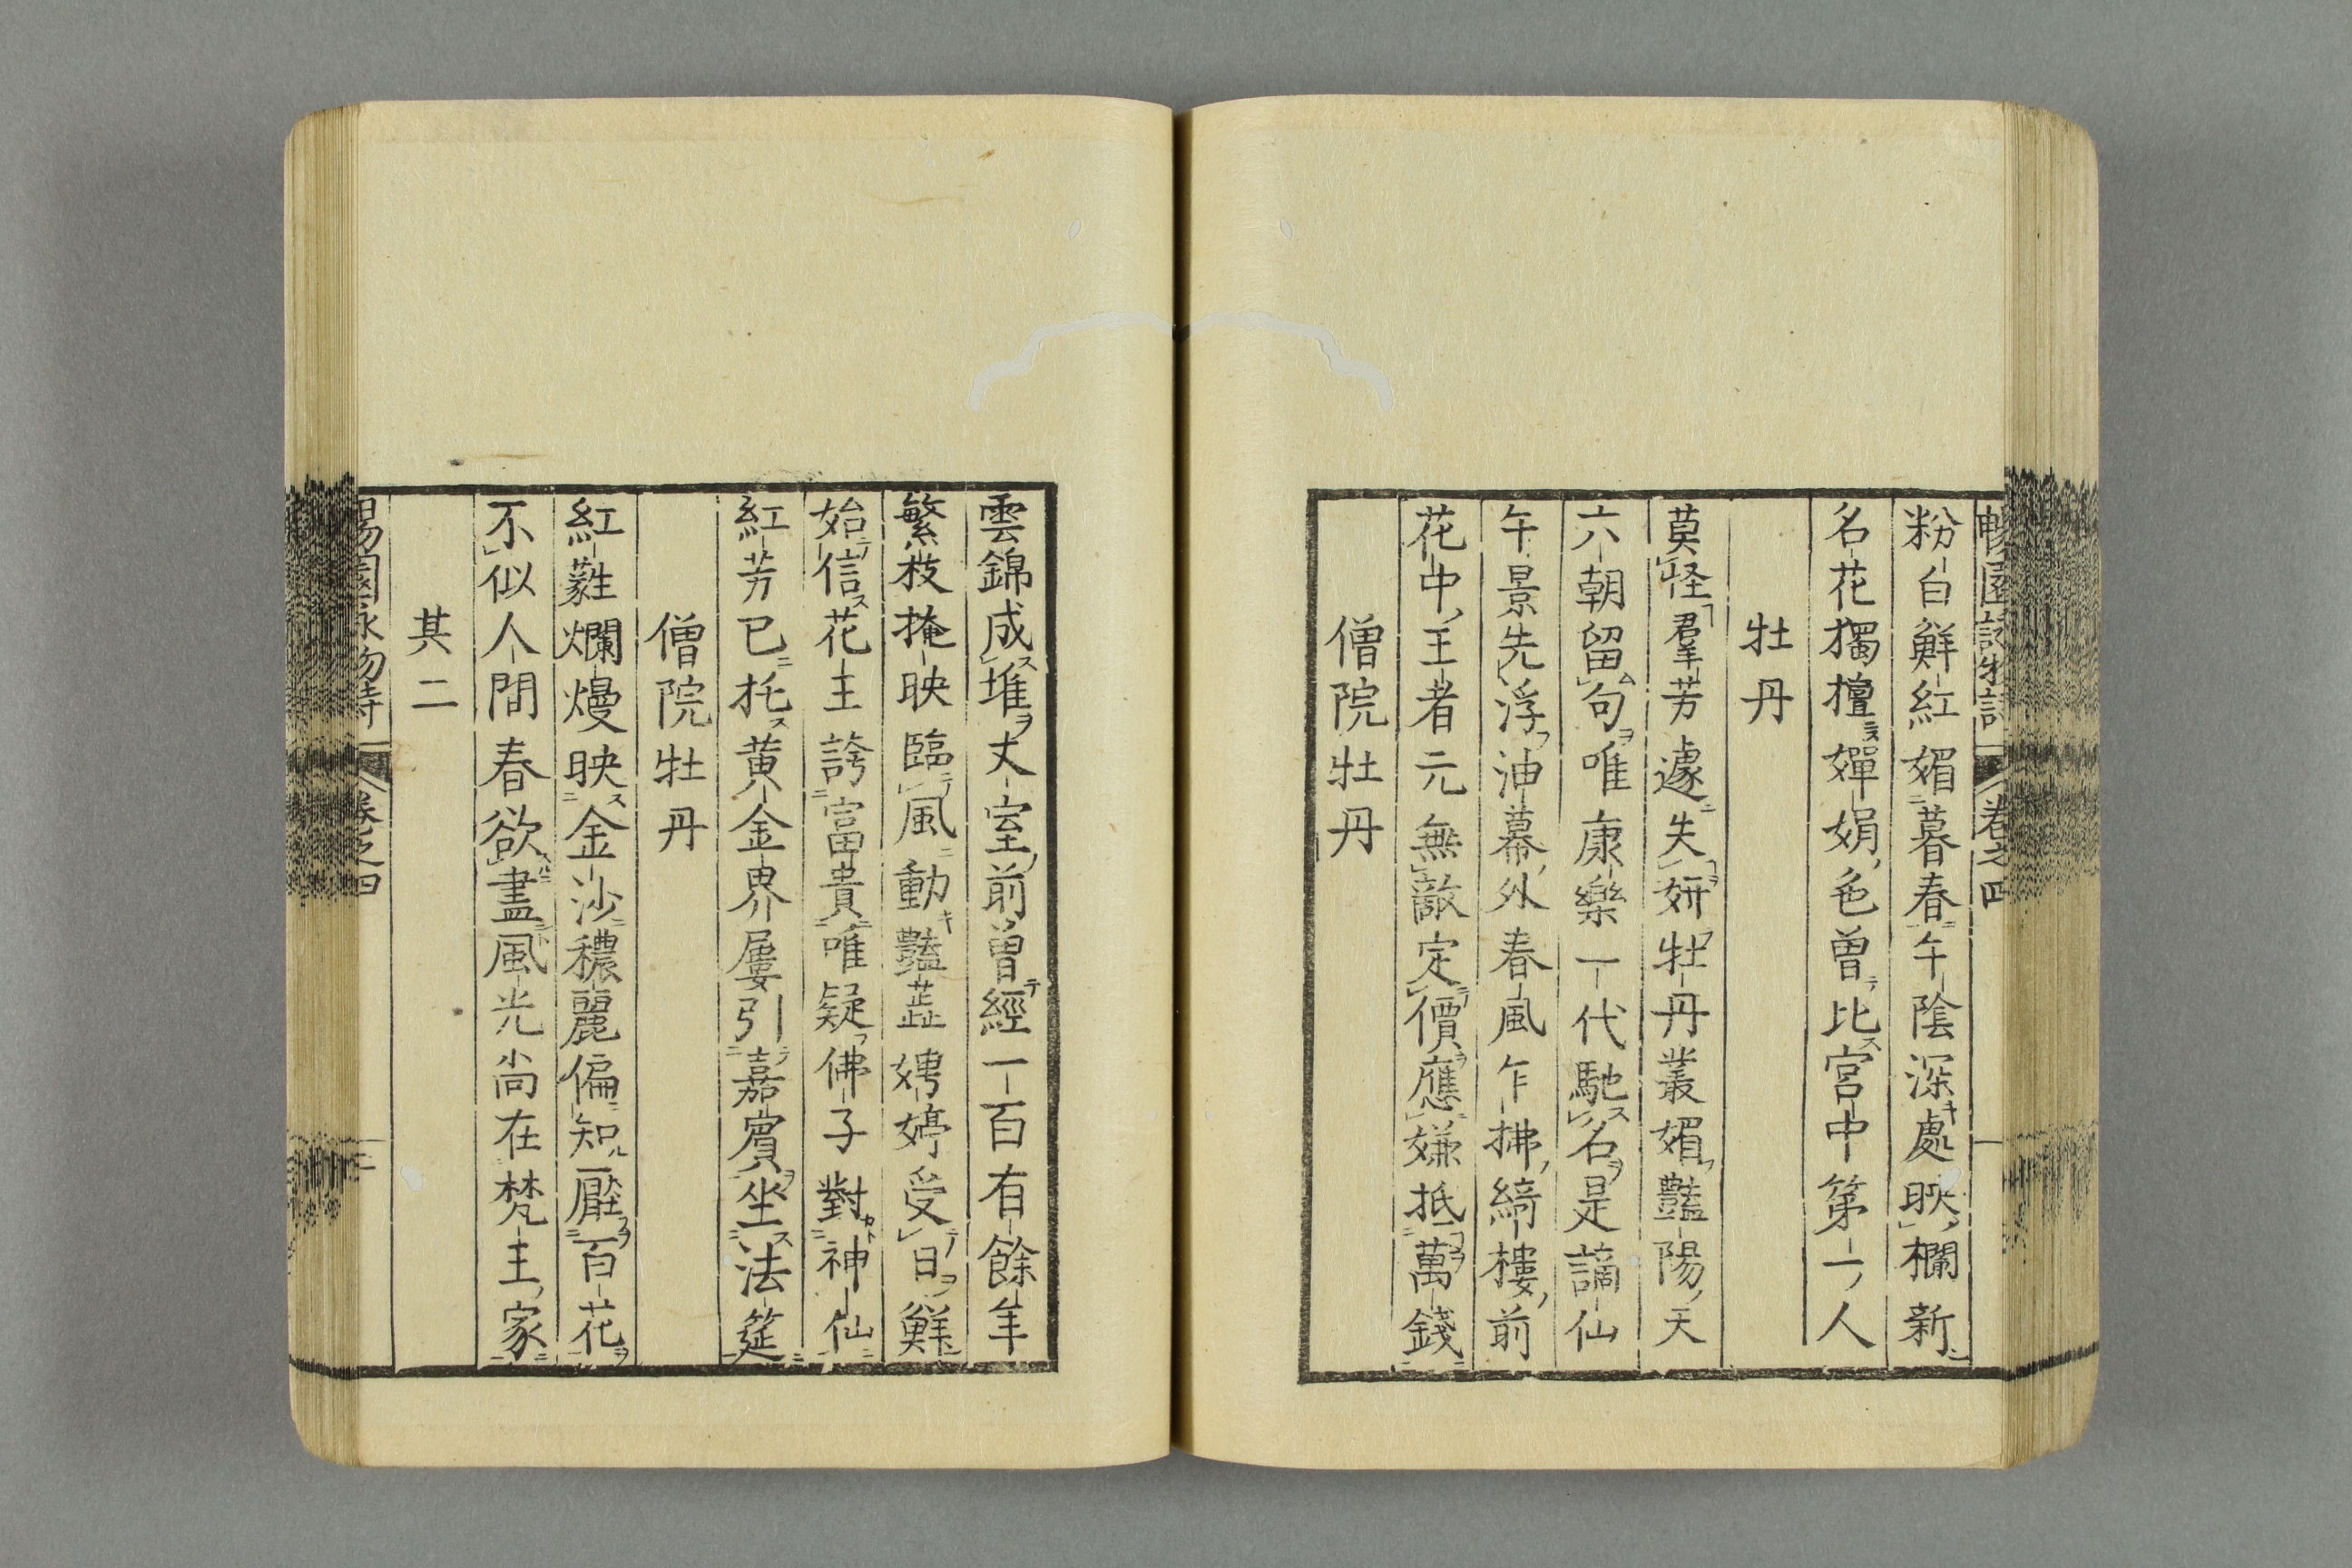 暢園詠物詩 卷之四
粉白鮮紅媚暮春午陰深處映欄新
名花獨擅嬋娟色曽比宮中第一人
牡丹
莫怪羣芳遽失妍牡丹叢媚豔陽天
六朝留句唯康樂一代馳名是謫仙
午景先浮油幕外春風乍拂綺樓前
花中王者元無敵定價應嫌抵萬錢
僧院牡丹
雲錦成堆丈室前曽經一百有餘年
繁枝掩映臨風動豔蕋娉婷受日鮮
始信花王誇富貴唯疑佛子對神仙
紅芳已托黄金界屢引嘉賓坐法筵
僧院牡丹
紅蕤爛熳映金沙穠麗偏知壓百花
不似人間春欲盡風光尚在梵王家
其二
暢園詠物詩 卷之四